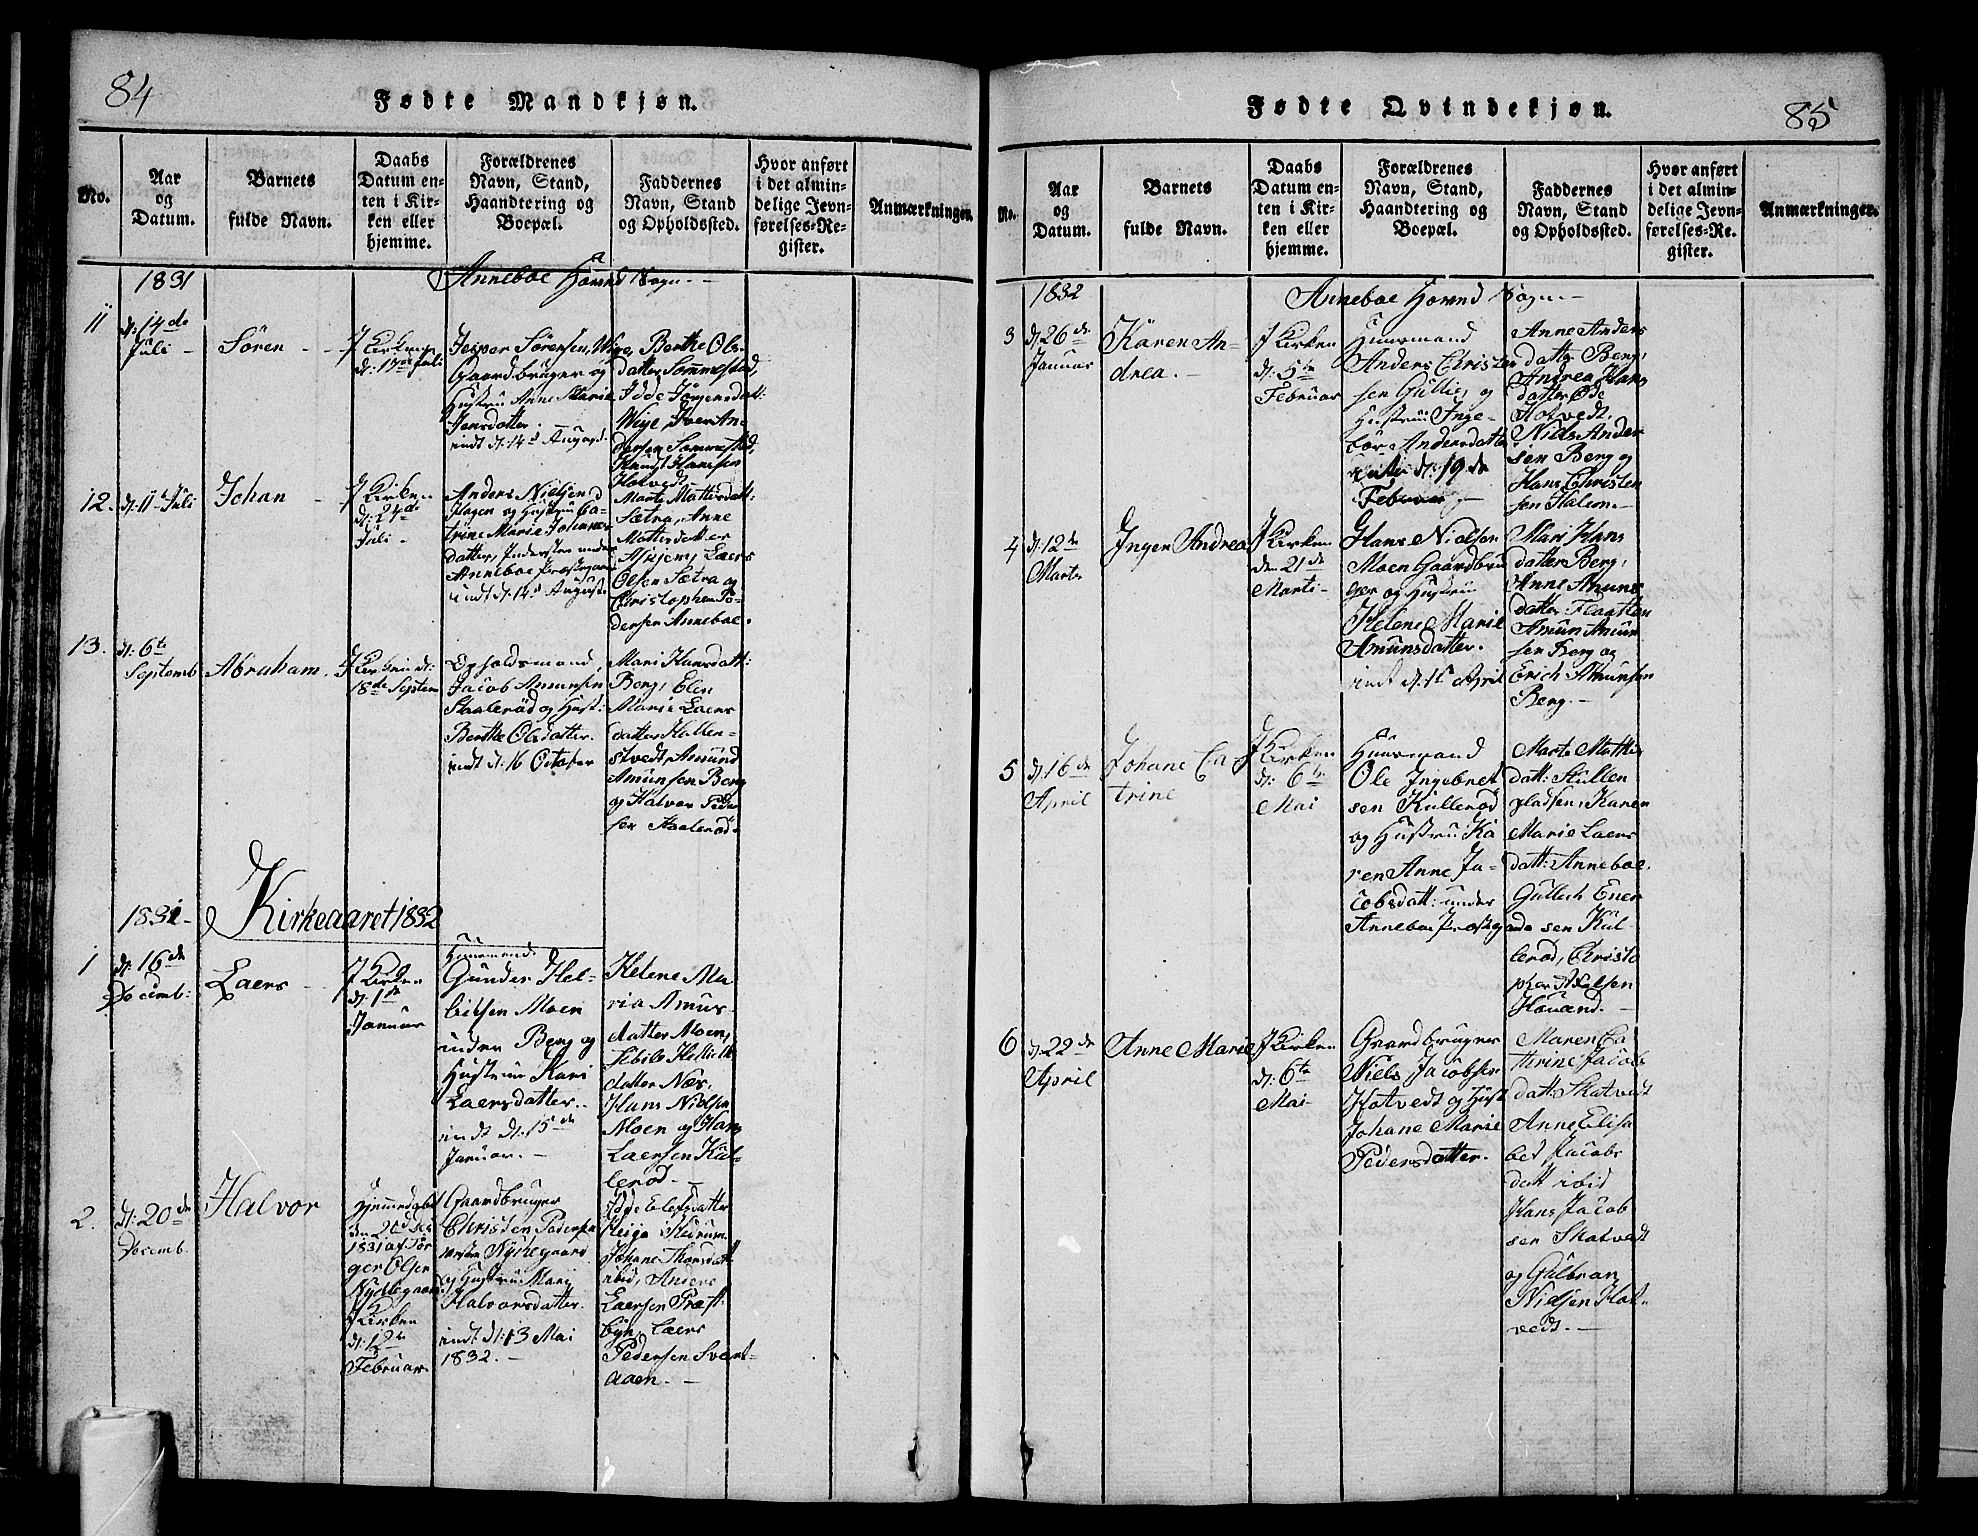 84
Fødte Mandkjøn.
No.
Aar
og
Datum.
Barnets
fulde Navn.
Daabs
Datum en-
ten i Kir-
ken eller
hjemme.
Forældrenes
Navn, Stand,
Haandtering og
Boepæl.
Faddernes
Navn, Stand
og Opholdssted.
Hvor anført
i det almin-
delige Jevn-
førelses-Re-
gister.
Anmærkninger.
1831
Anneboe Hovud Sogn.
11
d: 14de
Juli
Sören
I Kirken
Juli
Jesper Sörensen, Wige,
Gaardbruger og
Hustru Anne Marie
Jensdatter.
indt d: 14d August.
Berthe Ols-
datter Sommestad,
Idde Jörgensdatt:
Wige, Iver An
dersen Sommestad,
Knudt Hansen
Hotvedt.
12.
d: 11te Juli
Johan
I Kirken
d: 24de
Juli
Anders Nielsen
Hagen og Hustru Ca-
trine Marie Johannes
datter, under
Anneboe Præstegaard
indt d: 14d August
Marte Mattisdatt:
Sætra, Anne
Mattisdatter
Laers
Olsen Sætra og
Christopher Pe-
dersen Anneboe.
13.
d: 6te
Septemb
Abraham.
I Kirken d:
18de Septem
Opholdsmand
Jacob Amunsen
og Hust:
Berthe Olsdatter.
indt d: 16 October
Mari Hansdatt:
Berg, Elen
Marie Laers
datter Hallen-
stvedt, Amund
Amunsen Berg
og Halvor Peder
sen
1831
Kirkeaaret 1832
1
d: 16de
Decemb:
Laers
I Kirken
d: 1ste
Januar
Huusmand
Gunder Hel-
liksen Moen
under Berg og
Hustrue Kari
Laersdatter.
indt d: 15de
Januar.
Helene Ma
ria Amus-
datter Moen,
Sebile Hellik
datter Nær,
Hans Nielsen
Moen og Hans
Laersen Kul-
lerod.
2.
d: 20de
Decemb.
Halvor
Hjemmedøbt
1831 af Tor
ger Olsen
Nykkegaard
I Kirken
d: 12te
Februar
Gaardbruger
Christen Pedersen
Nykkegaard
og Hustru Mari
Halvorsdatter.
indt d: 13 Mai
1832.
Idde Elefsdatter
i Hedrum
Johane Thorsdatt
ibid, Anders
Laersen Præst-
byn, Laers
Pedersen Svart-
aaen.
Fødte Qvindekjøn.
85
No.
Aar
og
Datum.
Barnets
fulde Navn.
Daabs
Datum en-
ten i Kir-
ken eller
hjemme.
Forældrenes
Navn, Stand,
Haandtering og
Boepæl.
Faddernes
Navn, Stand
og Opholdssted.
Hvor anført
i det almin-
delige Jevn-
førelses-Re-
gister.
Anmærkninger.
1832
Anneboe Hovud Sogn.
3
d: 26de
Januar
Karen An-
drea.
I Kirken
d: 5te
Februar
Huusmand
Anders Christen
sen Gullie, og
Hustrue Inge-
bor Andersdatter
d: 19de
Februar
Anne Anders
datter Berg,
Andrea Hans
datter Øde
Hotvedt,
Niels Ander
sen Berg og
Hans Christen
sen Halum.
4
d: 12te
Marts
Inger Andrea
I Kirken
den 21de
Marti
Hans Nielsen
Moen Gaardbru
ger og Hustrue
Helene Marie
Amunsdatter.
indt d: 1st April
Mari Hans
datter Berg,
Anne Amuns
datter Flaatten
Amun Amun
sen Berg og
Erich Amunsen
Berg.
5
d: 16de
April
Johane Ca
trine
I Kirken
d: 6te
Mai
Huusmand
Ole Ingebret
sen Kullerod
og Hustrue Ka
ren Anne Ja-
cobsdatt: under
Anneboe Præstegaard
Marte Mathis
datt: Hullen
pladsen, Karen
Marie Laers
datt: Anneboe,
Gullich Ever
sen Kul
lerod, Christo
pher Axelsen
Hovand.
6
d: 22de
April
Anne Marie
I Kirken
d: 6te
Mai
Gaardbruger
Niels Jacobsen
Hotvedt og Hust
Johane Marie
Pedersdatter.
Maren Ca
thrine Jacob
datt: Skatvedt
Anne Elisa
bet Jacobs
datt ibid
Hans Jacob
sen Skatvedt
og Gulbran
Nielsen Hot-
vedt.